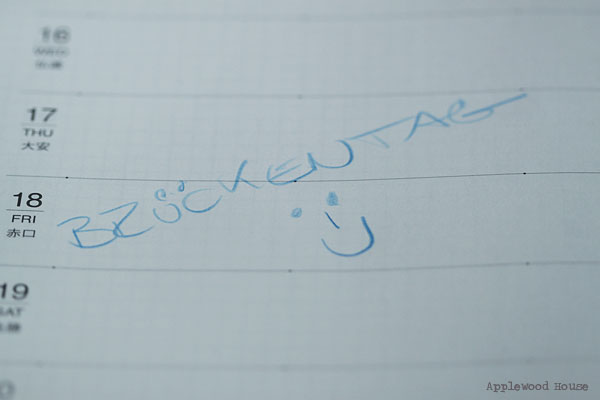 16
WED
仏滅
17
THU
大安
BRÜCKENTAG
18
FRI
赤口
19
SAT
Applewood House